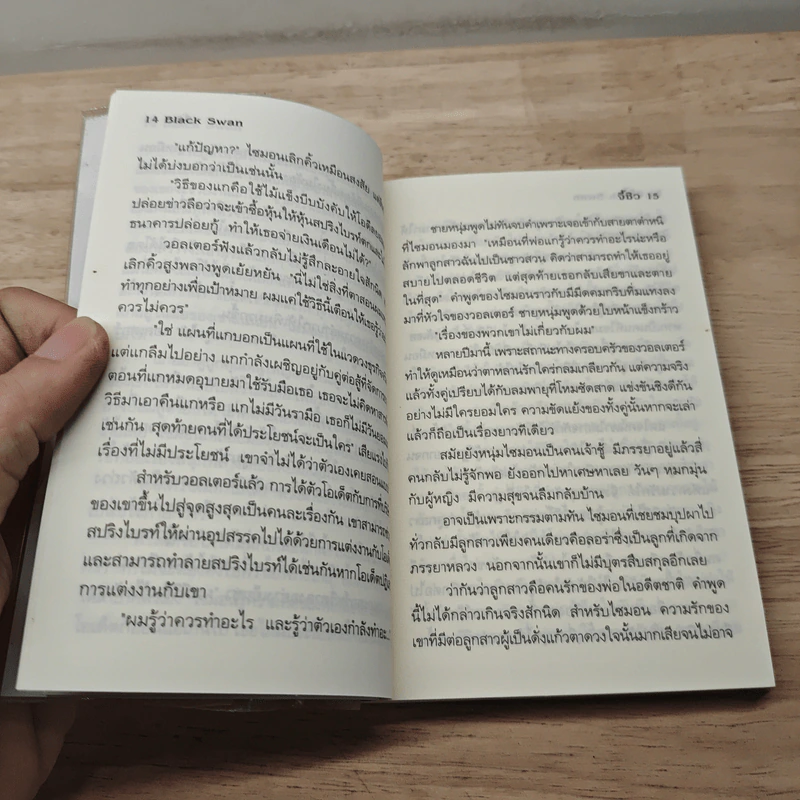 14 Black Swan
"แก้ปัญหา?" ไซมอนเลิกคิ้วเหมือนสงสัย
ไม่ได้บ่งบอกว่าเป็นเช่นนั้น
"วิธีของแกคือใช้ไม้แข็งบีบบังคับให้โอเด็ต
ปล่อยข่าวลือว่าจะเข้าซื้อหุ้นให้หุ้นสปริงไบรท์ตก
ธนาคารปล่อยกู้ ทำให้เธอจ่ายเงินเดือนไม่ได้"
วอลเตอร์ฟังแล้วกลับไม่รู้สึกละอายใจสักนิด
เลิกคิ้วสูงพลางพูดเย้ยหยัน "นี่ไม่ใช่สิ่งที่ตาสอนผม
ทำทุกอย่างเพื่อเป้าหมาย ผมแค่ใช้วิธีนี้เตือนให้เธอรู้ว่า
ควรไม่ควร"
"ใช่ แผนที่แกบอกเป็นแผนที่ใช้ในแวดวงธุรกิจ
แต่แกลืมไปอย่าง แกกำลังเผชิญอยู่กับคู่ต่อสู้ที่จัดการ
ตอนที่แกหมดอุบายมาใช้รับมือเธอ เธอจะไม่คิดหา
วิธีมาเอาคืนแกหรือ แกไม่มีวันรามือ เธอก็ไม่มีวัน
เช่นกัน สุดท้ายคนที่ได้ประโยชน์จะเป็นใคร" เสียแรง
เรื่องที่ไม่มีประโยชน์ เขาจำไม่ได้ว่าตัวเองเคยสอน
สำหรับวอลเตอร์แล้ว การได้ตัวโอเด็ตกับการที่
ของเขาขึ้นไปสู่จุดสูงสุดเป็นคนละเรื่องกัน เขาสามารถ
สปริงไบรท์ให้ผ่านอุปสรรคไปได้ด้วยการแต่งงานกับ
และสามารถทำลายสปริงไบรท์ได้เช่นกันหากโอเด็ต
การแต่งงานกับเขา
"ผมรู้ว่าควรทำอะไร และรู้ว่าตัวเองกำลังทำอะ...
จี้ฮิว 15
ชายหนุ่มพูดไม่ทันจบคำเพราะเจอเข้ากับสายตาตำหนิ
ที่ไซมอนมองมา "เหมือนที่พ่อแกรู้ว่าควรทำอะไรน่ะหรือ
ลักพาลูกสาวฉันไปเป็นชาวสวน คิดว่าสามารถทำให้เธออยู่
สบายไปตลอดชีวิต แต่สุดท้ายเธอกลับเสียขาและตาย
ในที่สุด" คำพูดของไซมอนราวกับมีมีดคมกริบที่มแทงลง
มาที่หัวใจของวอลเตอร์ ชายหนุ่มพูดด้วยใบหน้าแข็งกร้าว
"เรื่องของพวกเขาไม่เกี่ยวกับผม"
หลายปีมานี้ เพราะสถานะทางครอบครัวของวอลเตอร์
ทำให้ดูเหมือนว่าตาหลานรักใคร่กลมเกลียวกัน แต่ความจริง
แล้วทั้งคู่เปรียบได้กับลมพายุที่โหมซัดสาด แข่งขันชิงดีกัน
อย่างไม่มีใครยอมใคร ความขัดแย้งของทั้งคู่นั้นหากจะเล่า
แล้วก็ถือเป็นเรื่องยาวทีเดียว
สมัยยังหนุ่มไซมอนเป็นคนเจ้าชู้ มีภรรยาอยู่แล้วสี่
คนกลับไม่รู้จักพอ ยังออกไปหาเศษหาเลย วันๆ หมกมุ่น
กับผู้หญิง มีความสุขจนลืมกลับบ้าน
อาจเป็นเพราะกรรมตามทัน ไซมอนที่เชยชมบุปผาไป
ทั่วกลับมีลูกสาวเพียงคนเดียวคือลอร่าซึ่งเป็นลูกที่เกิดจาก
ภรรยาหลวง นอกจากนั้นเขาก็ไม่มีบุตรสืบสกุลอีกเลย
ว่ากันว่าลูกสาวคือคนรักของพ่อในอดีตชาติ คำพูด
นี้ไม่ได้กล่าวเกินจริงสักนิด สำหรับไซมอน ความรักของ
เขาที่มีต่อลูกสาวผู้เป็นดั่งแก้วตาดวงใจนั้นมากเสียจนไม่อาจ